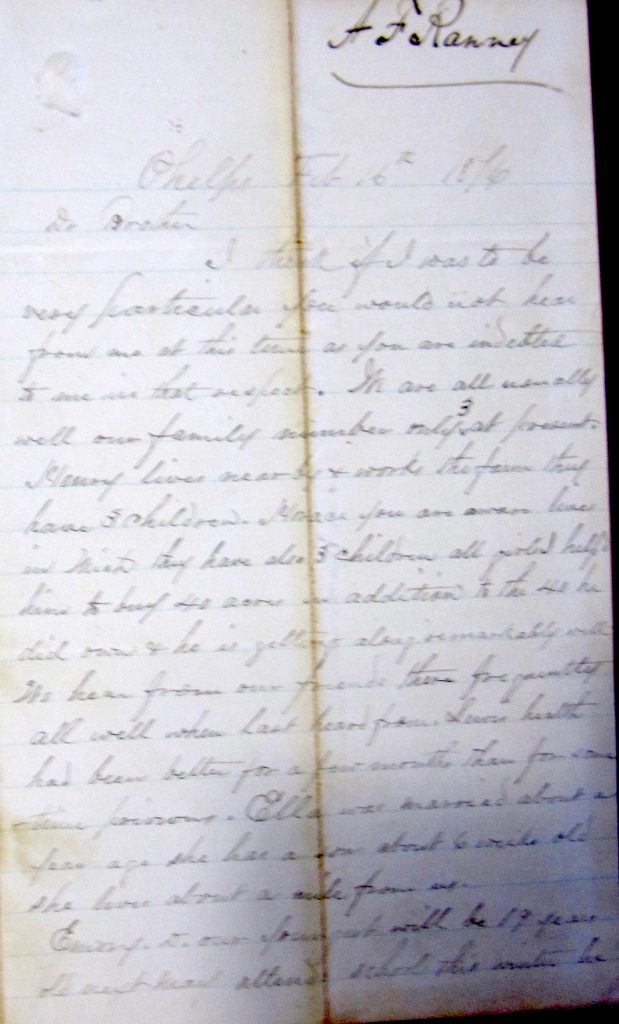 A F Ranney
Phelps Feb 16th 1876
Dr Brother
I think if I was to be
very particular you would not hear
from me at this time as you are indebted
to me in that respect. We are all usually
well our family number only 3 at present.
Henry lives near by & works the farm they
have 3 children. Horace you are aware lives
in Mich they have also 3 children all girls I help'd
him to buy 40 acres in addition to the 40 he
did own & he is getting along remarkably well
We hear from our friends there frequently
all well when last heard from. Lewis health
had been better for a few months than for some
time previous. Ella was married about a
year ago she has a son about 6 weeks old
she lives about a mile from us.
Emory our youngest will be 17 years
old next attends school this winter he